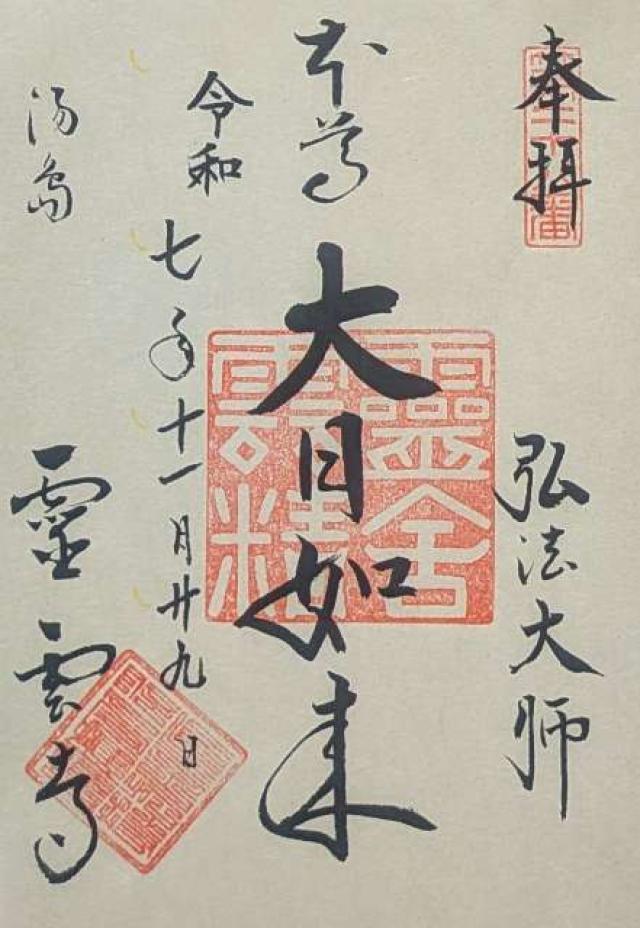 奉拝
弘法大師
本尊 大日如来
靈雲精舍
令和七年十一月廿九日
湯島 靈雲寺